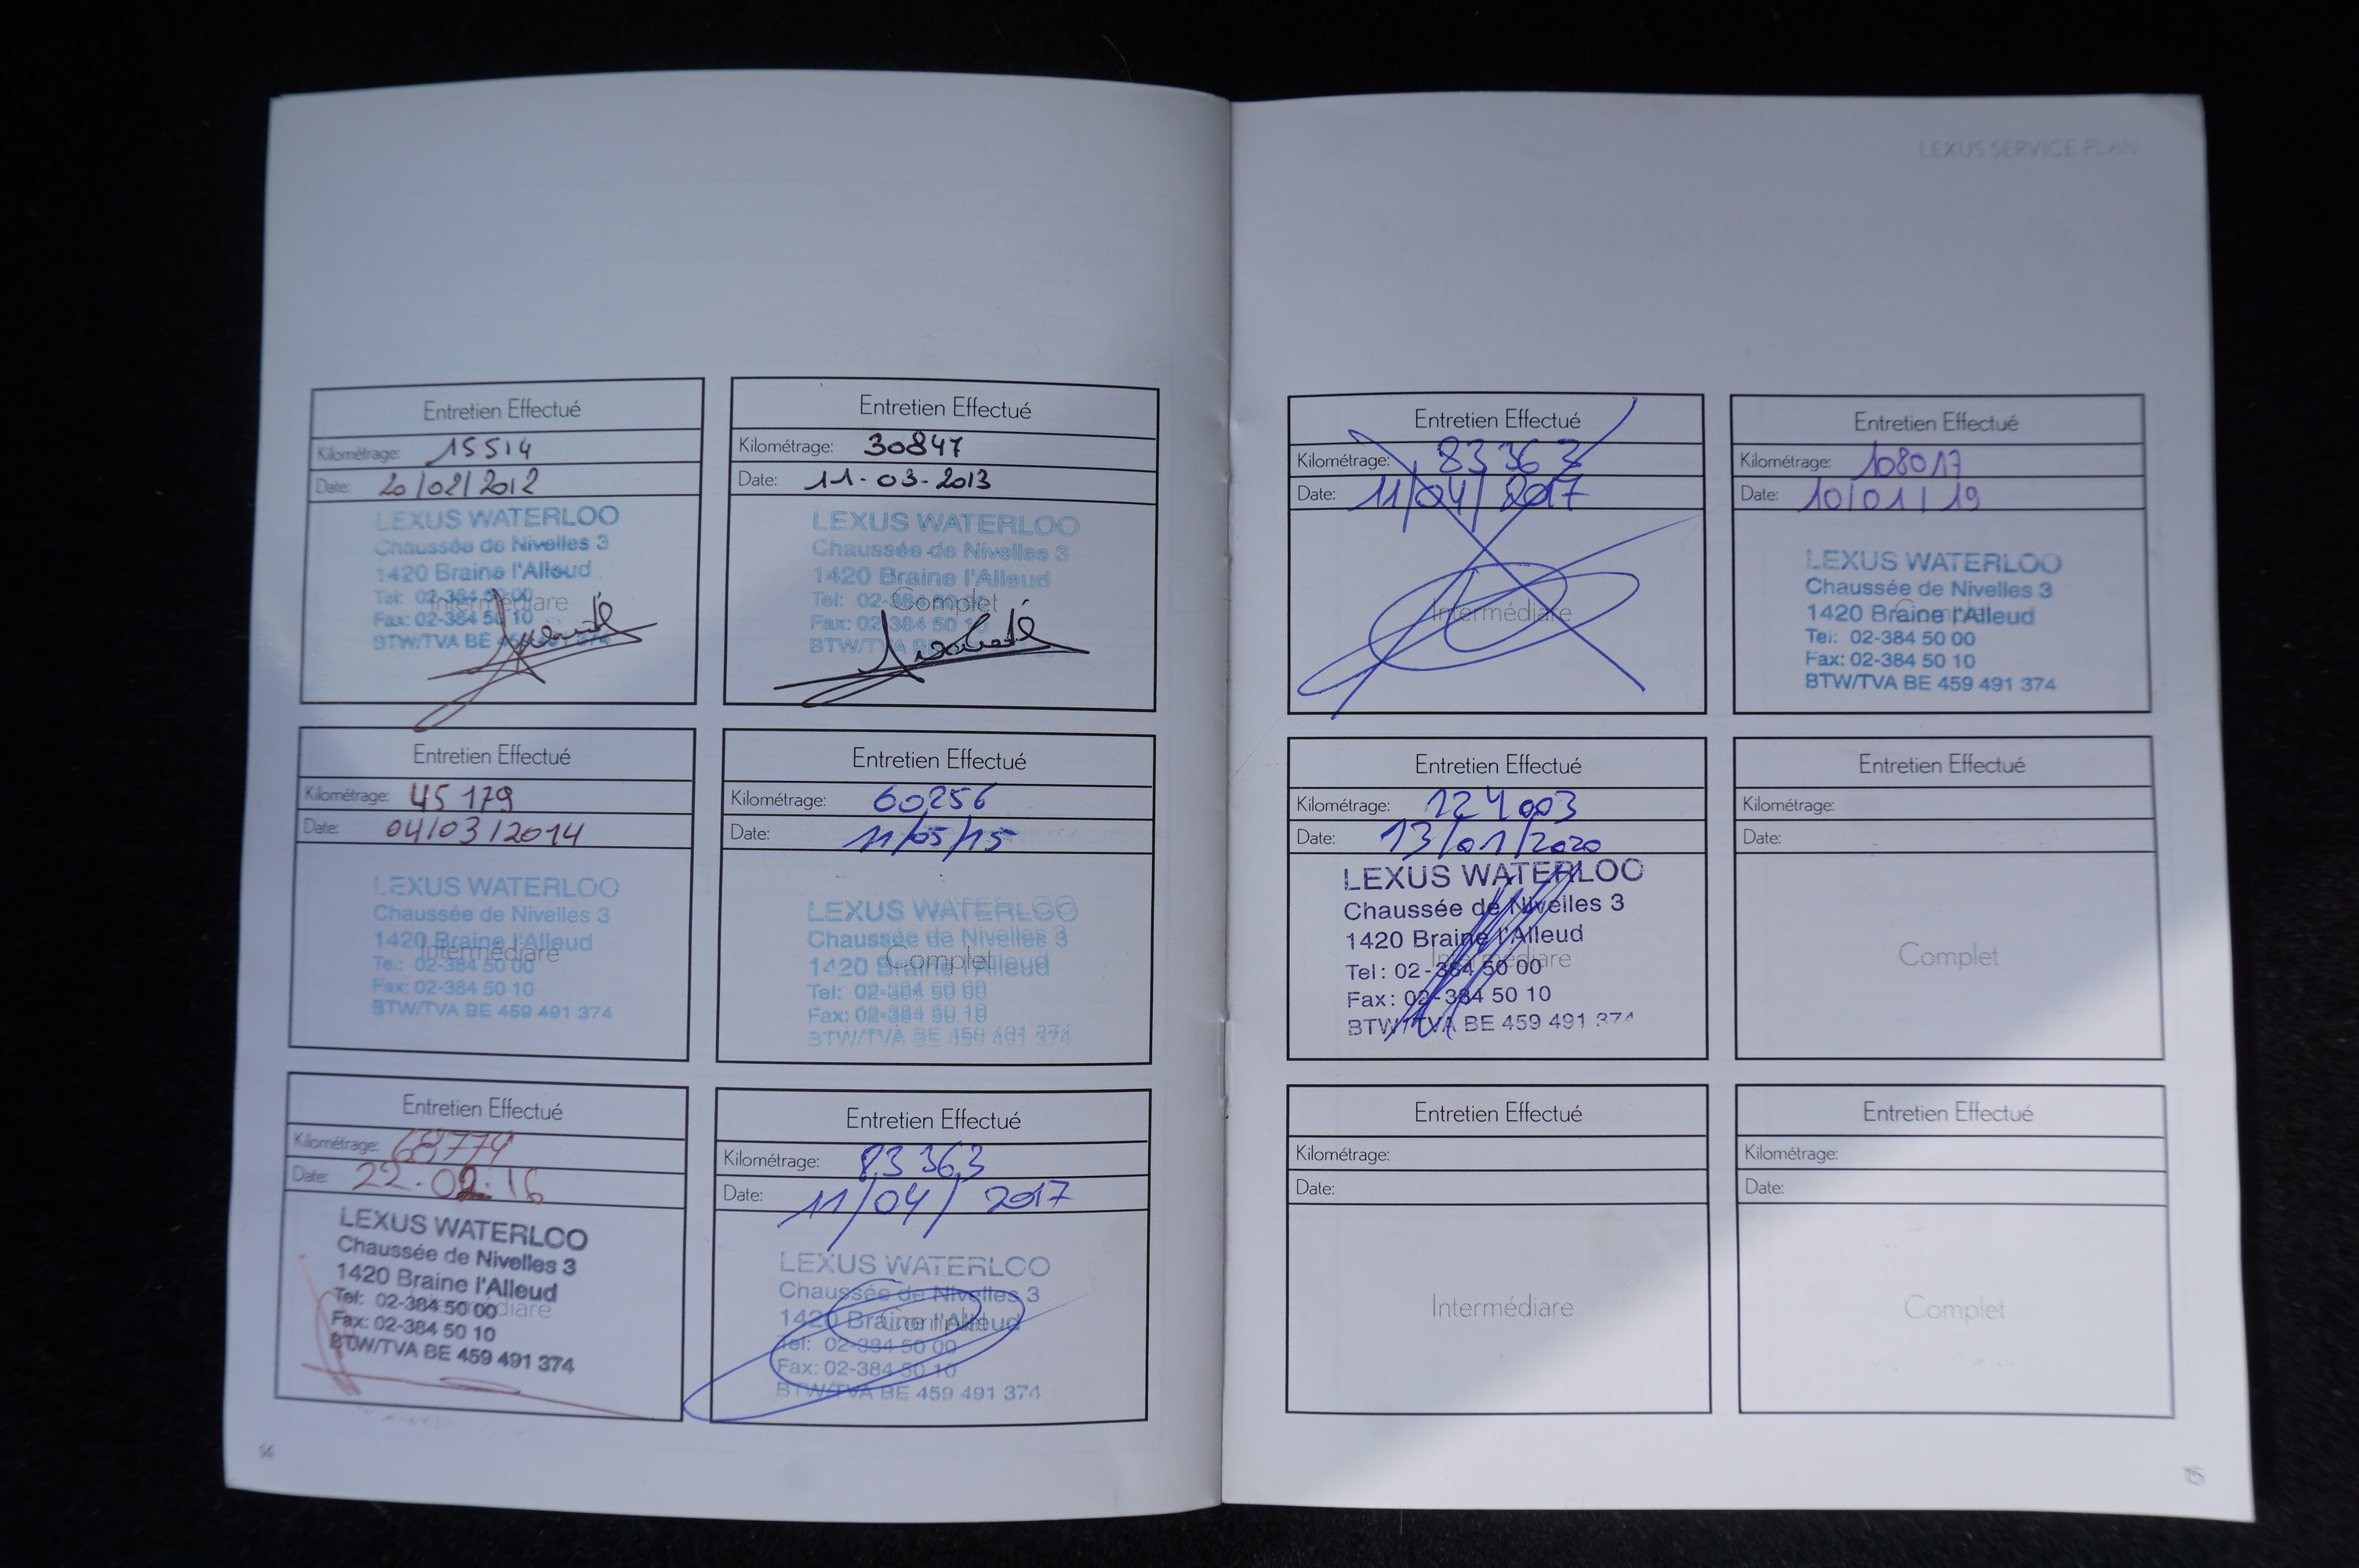 LEXUS SERVICE PLAN
Entretien Effectué
Kilométrage: 15514
Date: 20/02/2012
LEXUS WATERLOO
Chaussée de Nivelles 3
1420 Braine l'Alleud
Tel: 02-384 50 00
Intermédiare
Fax: 02-384 50 10
BTW/TVA BE 459 491 374
Entretien Effectué
Kilométrage: 30847
Date: 11-03-2013
LEXUS WATERLOO
Chaussée de Nivelles 3
1420 Braine l'Alleud
Tel: 02-384 50 00
Complet
Fax: 02-384 50 10
BTW/TVA BE
Entretien Effectué
Kilométrage: 45179
Date: 04/03/2014
LEXUS WATERLOO
Chaussée de Nivelles 3
1420 Braine l'Alleud
Intermédiare
Tel: 02-384 50 00
Fax: 02-384 50 10
BTW/TVA BE 459 491 374
Entretien Effectué
Kilométrage: 60256
Date: 11/05/15
LEXUS WATERLOO
Chaussée de Nivelles 3
Complet
1420 Braine l'Alleud
Tel: 02-384 50 00
Fax: 02-384 50 10
BTW/TVA BE 459 491 374
Entretien Effectué
Kilométrage: 68779
Date: 22.02.16
LEXUS WATERLOO
Chaussée de Nivelles 3
1420 Braine l'Alleud
Tel: 02-384 50 00
Intermédiare
Fax: 02-384 50 10
BTW/TVA BE 459 491 374
Entretien Effectué
Kilométrage: 83363
Date: 11/04/2017
LEXUS WATERLOO
Chaussée de Nivelles 3
1420 Braine l'Alleud
Complet
Tel: 02-384 50 00
Fax: 02-384 50 10
BTW/TVA BE 459 491 374
14
Entretien Effectué
Kilométrage: 83363
Date: 11/04/2017
Intermédiare
Entretien Effectué
Kilométrage: 108017
Date: 10/01/19
LEXUS WATERLOO
Chaussée de Nivelles 3
1420 Braine l'Alleud
Complet
Tel: 02-384 50 00
Fax: 02-384 50 10
BTW/TVA BE 459 491 374
Entretien Effectué
Kilométrage: 124003
Date: 13/01/2020
LEXUS WATERLOO
Chaussée de Nivelles 3
1420 Braine l'Alleud
Intermédiare
Tel: 02-384 50 00
Fax: 02-384 50 10
BTW/TVA BE 459 491 374
Entretien Effectué
Kilométrage:
Date:
Complet
Entretien Effectué
Kilométrage:
Date:
Intermédiare
Entretien Effectué
Kilométrage:
Date:
Complet
15